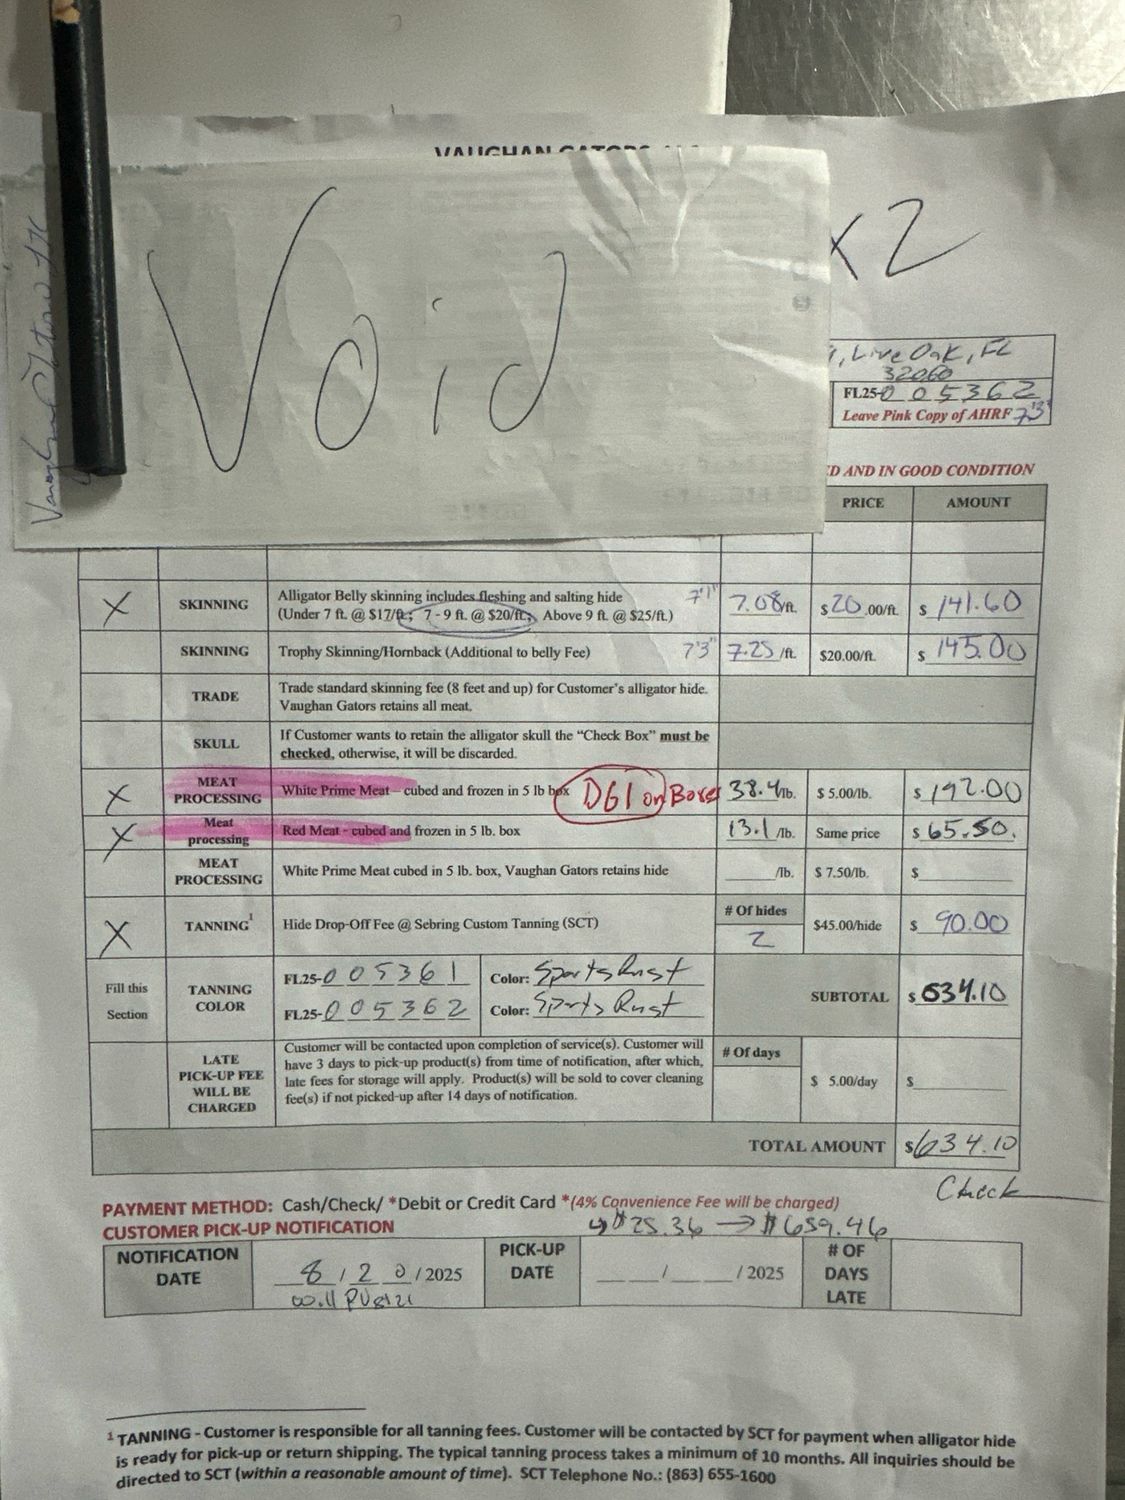 VAUGHAN GATORS
Void
x2
Live Oak, FL
32060
FL25-0 0 5 3 6 2
Leave Pink Copy of AHRF 7'3"
D AND IN GOOD CONDITION
PRICE AMOUNT
X SKINNING Alligator Belly skinning includes fleshing and salting hide 7'1" 7.08/ft. $20.00/ft. $ 141.60
(Under 7 ft. @ $17/ft.; 7 - 9 ft. @ $20/ft.; Above 9 ft. @ $25/ft.)
SKINNING Trophy Skinning/Hornback (Additional to belly Fee) 7'3" 7.25/ft. $20.00/ft. $ 145.00
TRADE Trade standard skinning fee (8 feet and up) for Customer's alligator hide.
Vaughan Gators retains all meat.
SKULL If Customer wants to retain the alligator skull the "Check Box" must be
checked, otherwise, it will be discarded.
X MEAT PROCESSING White Prime Meat – cubed and frozen in 5 lb box DG1 on Boxes 38.4/lb. $ 5.00/lb. $ 192.00
X Meat processing Red Meat - cubed and frozen in 5 lb. box 13.1/lb. Same price $ 65.50.
MEAT PROCESSING White Prime Meat cubed in 5 lb. box, Vaughan Gators retains hide /lb. $ 7.50/lb. $
X TANNING1 Hide Drop-Off Fee @ Sebring Custom Tanning (SCT) # Of hides 2 $45.00/hide $ 90.00
Fill this Section TANNING COLOR FL25-0 0 5 3 6 1 Color: Sports Rust
FL25-0 0 5 3 6 2 Color: Sports Rust
SUBTOTAL $ 634.10
LATE PICK-UP FEE WILL BE CHARGED
Customer will be contacted upon completion of service(s). Customer will
have 3 days to pick-up product(s) from time of notification, after which,
late fees for storage will apply. Product(s) will be sold to cover cleaning
fee(s) if not picked-up after 14 days of notification.
# Of days $ 5.00/day $
TOTAL AMOUNT $634.10
Check
PAYMENT METHOD: Cash/Check/ *Debit or Credit Card *(4% Convenience Fee will be charged)
CUSTOMER PICK-UP NOTIFICATION $25.36 → $659.46
NOTIFICATION DATE 8 / 2 0 / 2025 PICK-UP DATE / / 2025 # OF DAYS LATE
will PU 8/21
1 TANNING - Customer is responsible for all tanning fees. Customer will be contacted by SCT for payment when alligator hide
is ready for pick-up or return shipping. The typical tanning process takes a minimum of 10 months. All inquiries should be
directed to SCT (within a reasonable amount of time). SCT Telephone No.: (863) 655-1600